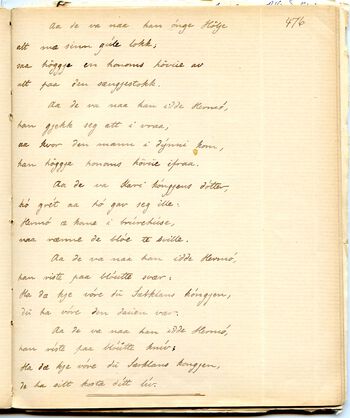 476
Aa de va naa han ónge Hölje
alt mæ sinm gúle lokk;
saa höggje en honoms hóvúe av
alt paa den sængjestokk.
Aa de va naa han idde Hermó,
han gjekk seg att i vraa,
aa hvor den mann i dýnni kom,
han höggje honoms hóvúe ifraa.
Aa de va Kari kóngjens dótter,
hó grét aa hó gav seg ille:
Hermó æ kome i brúrehúse,
naa renne de blóe te sville.
Aa de va naa han idde Hermó,
han riste paa blóutte svær:
Ha dæ kje vóre dú Sakslans kóngjen,
dú ha vóre den dauen vær.
Aa de va naa han idde Hermó,
han riste paa blóutte kniv:
Ha dæ kje vóre dú Sakslans kongjen,
de ha sitt kosta ditt liv.